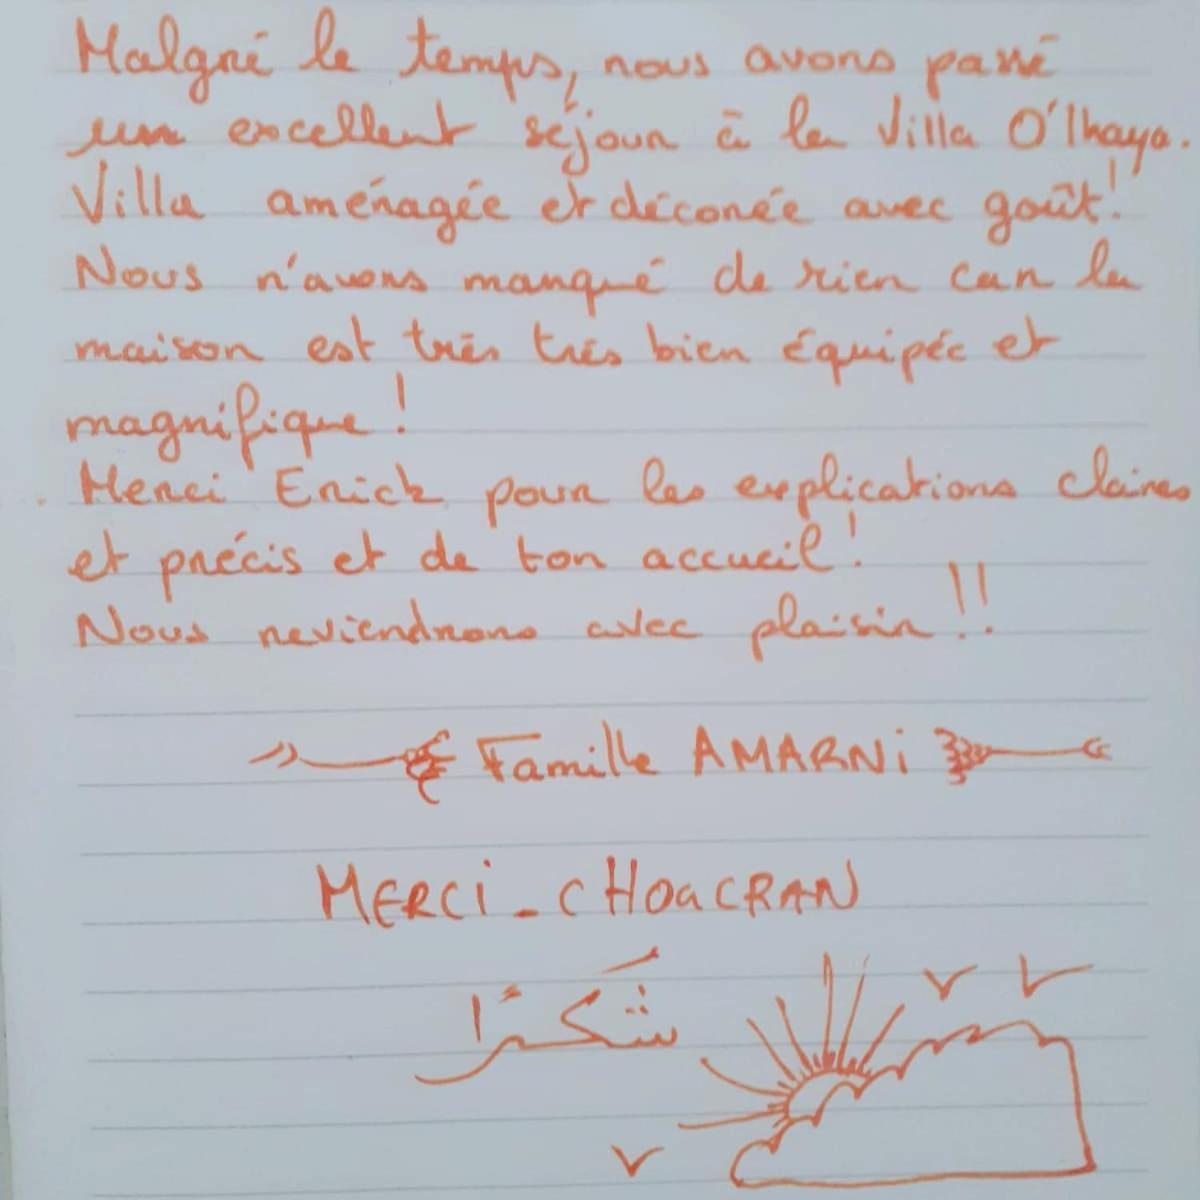 Malgré le temps, nous avons passé
un excellent séjour à la Villa O'lhaya.
Villa aménagée et décorée avec goût !
Nous n'avons manqué de rien car la
maison est très très bien équipée et
magnifique !
Merci Erick pour les explications claires
et précis et de ton accueil !
Nous reviendrons avec plaisir !!
Famille AMARNi
MERCi - CHOUCRAN
شكرًا